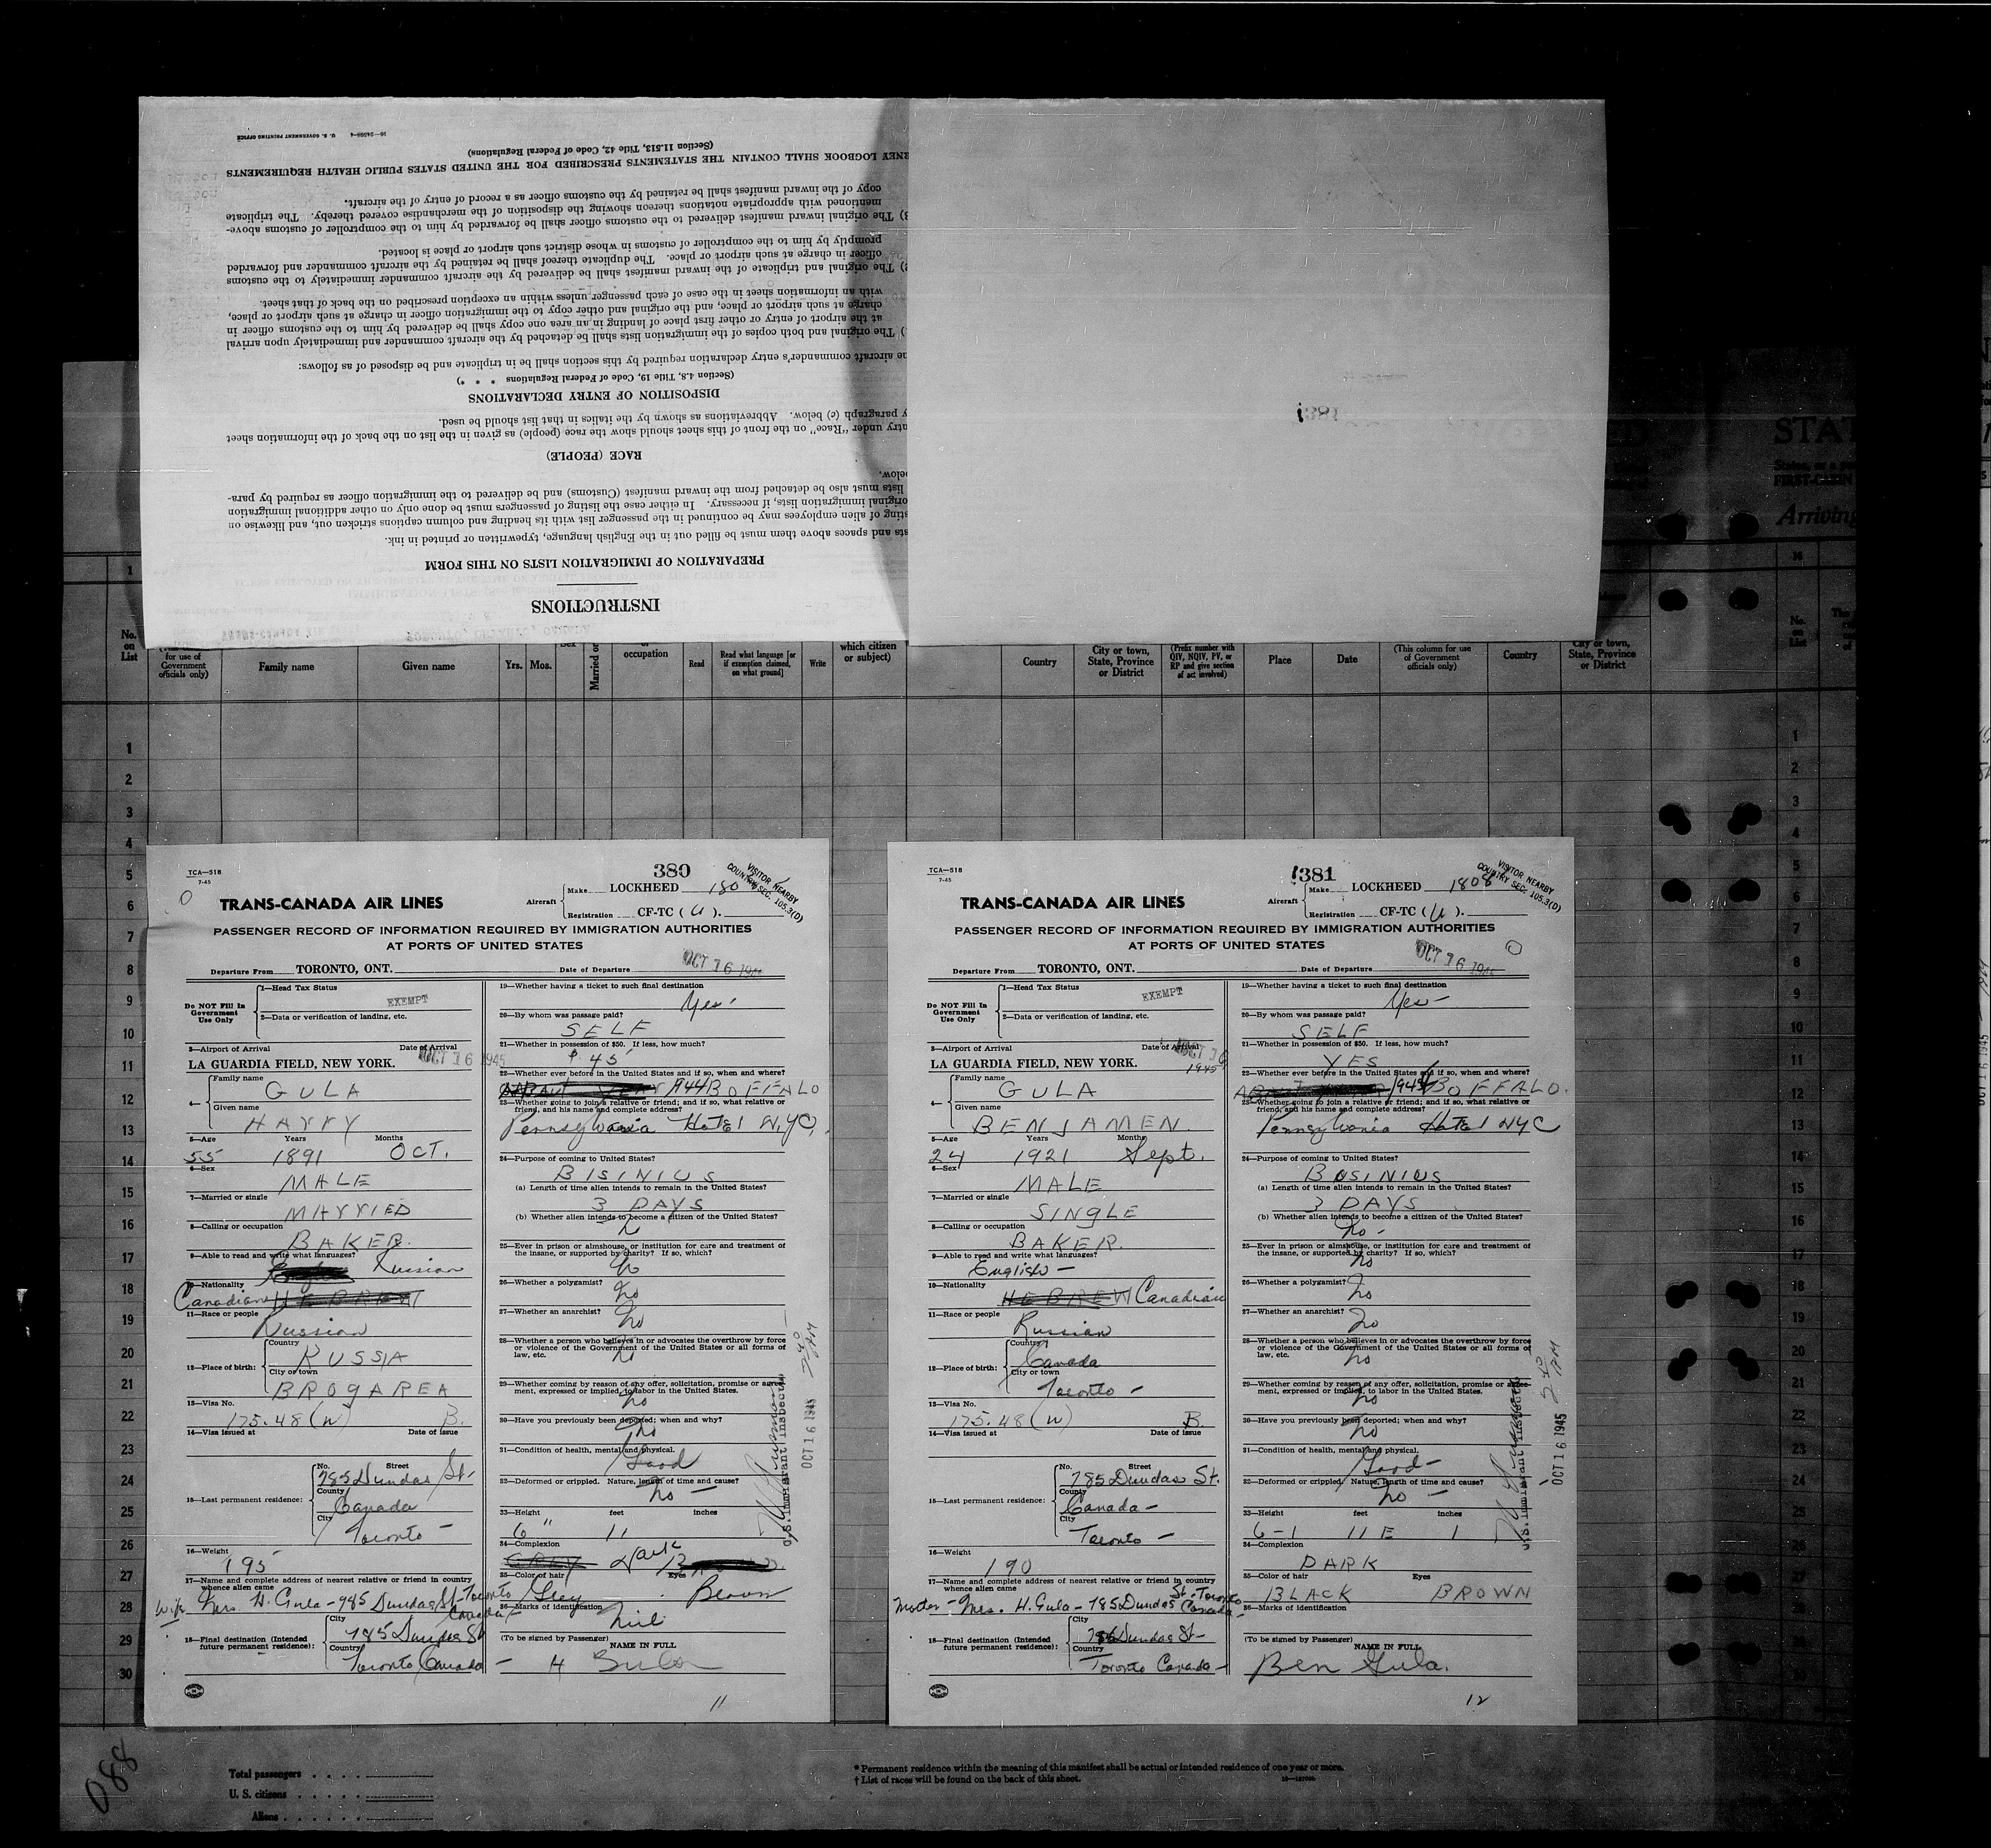 16—24566-4 U. S. GOVERNMENT PRINTING OFFICE
(Section 11.513, Title 42, Code of Federal Regulations)
LOGBOOK SHALL CONTAIN THE STATEMENTS PRESCRIBED FOR THE UNITED STATES PUBLIC HEALTH REQUIREMENTS
copy of the inward manifest shall be retained by the customs officer as a record of entry of the aircraft.
mentioned with appropriate notations thereon showing the disposition of the merchandise covered thereby. The triplicate
The original inward manifest delivered to the customs officer shall be forwarded by him to the comptroller of customs above-
promptly by him to the comptroller of customs in whose district such airport or place is located.
officer in charge at such airport or place. The duplicate thereof shall be retained by the aircraft commander and forwarded
The original and triplicate of the inward manifest shall be delivered by the aircraft commander immediately to the customs
with an information sheet in the case of each passenger unless within an exception prescribed on the back of that sheet.
charge at such airport or place, and the original and other copy to the immigration officer in charge at such airport or place,
at the airport of entry or other first place of landing in an area one copy shall be delivered by him to the customs officer in
The original and both copies of the immigration lists shall be detached by the aircraft commander and immediately upon arrival
aircraft commander's entry declaration required by this section shall be in triplicate and be disposed of as follows:
(Section 4.8, Title 19, Code of Federal Regulations * * *)
DISPOSITION OF ENTRY DECLARATIONS
paragraph (c) below. Abbreviations as shown by the italics in that list should be used.
under "Race" on the front of this sheet should show the race (people) as given in the list on the back of the information sheet
RACE (PEOPLE)
below.
lists must also be detached from the inward manifest (Customs) and be delivered to the immigration officer as required by para-
original immigration lists, if necessary. In either case the listing of passengers must be done only on other additional immigration
of alien employees may be continued in the passenger list with its heading and column captions stricken out, and likewise on
and spaces above them must be filled out in the English language, typewritten or printed in ink.
PREPARATION OF IMMIGRATION LISTS ON THIS FORM
INSTRUCTIONS
381
STAT
FIRST-CABIN
Arriving
1
16
No. on List
for use of Government officials only)
Family name
Given name
Yrs. Mos.
Sex
Married or
occupation
Read
Read what language [or if exemption claimed, on what ground]
Write
which citizen or subject)
Country
City or town, State, Province or District
(Prefix number with QIV, NQIV, PV, or RP and give section of act involved)
Place
Date
(This column for use of Government officials only)
Country
City or town, State, Province or District
No. on List
TCA—518
7-45
380
VISITOR NEARBY
COUNTRY SEC. 105.3(D)
Aircraft
Make LOCKHEED 180
Registration CF-TC (U).
TRANS-CANADA AIR LINES
PASSENGER RECORD OF INFORMATION REQUIRED BY IMMIGRATION AUTHORITIES
AT PORTS OF UNITED STATES
Departure From TORONTO, ONT. Date of Departure OCT 16
Do NOT Fill In Government Use Only
1—Head Tax Status EXEMPT
2—Data or verification of landing, etc.
3—Airport of Arrival Date of Arrival
LA GUARDIA FIELD, NEW YORK. OCT 16 1945
4— Family name
GULA
Given name
HARRY
5—Age Years Months
55 1891 OCT.
6—Sex
MALE
7—Married or single
MARRIED
8—Calling or occupation
BAKER.
9—Able to read and write what languages?
Russian
10—Nationality
Canadian HEBREW
11—Race or people
Russian
12—Place of birth:
Country
RUSSIA
City or town
BROGAREA
13—Visa No.
175.48 (W) B.
14—Visa issued at Date of issue
15—Last permanent residence:
No. Street
785 Dundas St-
County
Canada
City
Toronto -
16—Weight
195
17—Name and complete address of nearest relative or friend in country
whence alien came
Wife Mrs. H. Gula - 785 Dundas St-Toronto
Canada
18—Final destination (Intended future permanent residence):
City
785 Dundas St
Country
Toronto Canada -
19—Whether having a ticket to such final destination
Yes
20—By whom was passage paid?
SELF
21—Whether in possession of $50. If less, how much?
$ 45
22—Whether ever before in the United States and if so, when and where?
1944 BOFFALO
23—Whether going to join a relative or friend; and if so, what relative or
friend, and his name and complete address?
Pennsylvania Hotel N.Y.C.
24—Purpose of coming to United States?
BISINIUS
(a) Length of time alien intends to remain in the United States?
3 DAYS
(b) Whether alien intends to become a citizen of the United States?
No
25—Ever in prison or almshouse, or institution for care and treatment of
the insane, or supported by charity? If so, which?
No
26—Whether a polygamist?
No
27—Whether an anarchist?
No
28—Whether a person who believes in or advocates the overthrow by force
or violence of the Government of the United States or all forms of
law, etc.
No
29—Whether coming by reason of any offer, solicitation, promise or agree-
ment, expressed or implied, to labor in the United States.
No
30—Have you previously been deported; when and why?
No
31—Condition of health, mental and physical.
Good
32—Deformed or crippled. Nature, length of time and cause?
No -
33—Height feet inches
6 " 11
34—Complexion
Dark
35—Color of hair Eyes
Grey Brown
36—Marks of identification
Nil
(To be signed by Passenger) NAME IN FULL
H Gula
U.S. Immigrant Inspector
OCT 16 1945
11
TCA—518
7-45
1381
VISITOR NEARBY
COUNTRY SEC. 105.3(D)
Aircraft
Make LOCKHEED 1808
Registration CF-TC (U).
TRANS-CANADA AIR LINES
PASSENGER RECORD OF INFORMATION REQUIRED BY IMMIGRATION AUTHORITIES
AT PORTS OF UNITED STATES
Departure From TORONTO, ONT. Date of Departure OCT 16
Do NOT Fill In Government Use Only
1—Head Tax Status EXEMPT
2—Data or verification of landing, etc.
3—Airport of Arrival Date of Arrival
LA GUARDIA FIELD, NEW YORK. OCT 16 1945
4— Family name
GULA
Given name
BENJAMEN.
5—Age Years Months
24 1921 Sept.
6—Sex
MALE
7—Married or single
SINGLE
8—Calling or occupation
BAKER.
9—Able to read and write what languages?
English -
10—Nationality
HEBREW Canadian
11—Race or people
Russian
12—Place of birth:
Country
Canada
City or town
Toronto -
13—Visa No.
175.48 (W) B.
14—Visa issued at Date of issue
15—Last permanent residence:
No. Street
785 Dundas St.
County
Canada -
City
Toronto -
16—Weight
190
17—Name and complete address of nearest relative or friend in country
whence alien came
Mother - Mrs. H. Gula - 785 Dundas St-Toronto
Canada -
18—Final destination (Intended future permanent residence):
City
785 Dundas St-
Country
Toronto Canada -
19—Whether having a ticket to such final destination
Yes -
20—By whom was passage paid?
SELF
21—Whether in possession of $50. If less, how much?
YES
22—Whether ever before in the United States and if so, when and where?
1944 BOFFALO.
23—Whether going to join a relative or friend; and if so, what relative or
friend, and his name and complete address?
Pennsylvania Hotel NYC
24—Purpose of coming to United States?
BUSINIUS
(a) Length of time alien intends to remain in the United States?
3 DAYS
(b) Whether alien intends to become a citizen of the United States?
No -
25—Ever in prison or almshouse, or institution for care and treatment of
the insane, or supported by charity? If so, which?
No
26—Whether a polygamist?
No
27—Whether an anarchist?
No
28—Whether a person who believes in or advocates the overthrow by force
or violence of the Government of the United States or all forms of
law, etc.
No
29—Whether coming by reason of any offer, solicitation, promise or agree-
ment, expressed or implied, to labor in the United States.
No
30—Have you previously been deported; when and why?
No
31—Condition of health, mental and physical.
Good -
32—Deformed or crippled. Nature, length of time and cause?
No -
33—Height feet inches
6-1 1
34—Complexion
DARK
35—Color of hair Eyes
BLACK BROWN
36—Marks of identification
(To be signed by Passenger) NAME IN FULL
Ben Gula.
U.S. Immigrant Inspector
OCT 16 1945
12
088
Total passengers
U. S. citizens
Aliens
* Permanent residence within the meaning of this manifest shall be actual or intended residence of one year or more.
† List of races will be found on the back of this sheet.